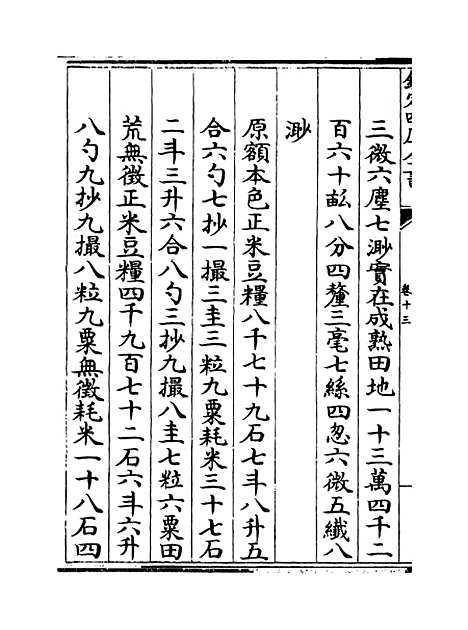 欽定四庫全書
卷十三
三微六塵七渺實在成熟田地一十三萬四千二
百六十畝八分四釐三毫七絲四忽六微五纖八
渺
原額本色正米豆糧八千七十九石七斗八升五
合六勺七抄一撮三圭三粒九粟耗米三十七石
二斗三升六合八勺三抄九撮八圭七粒六粟田
荒無徵正米豆糧四千九百七十二石六斗六升
八勺九抄九撮八粒九粟無徵耗米一十八石四